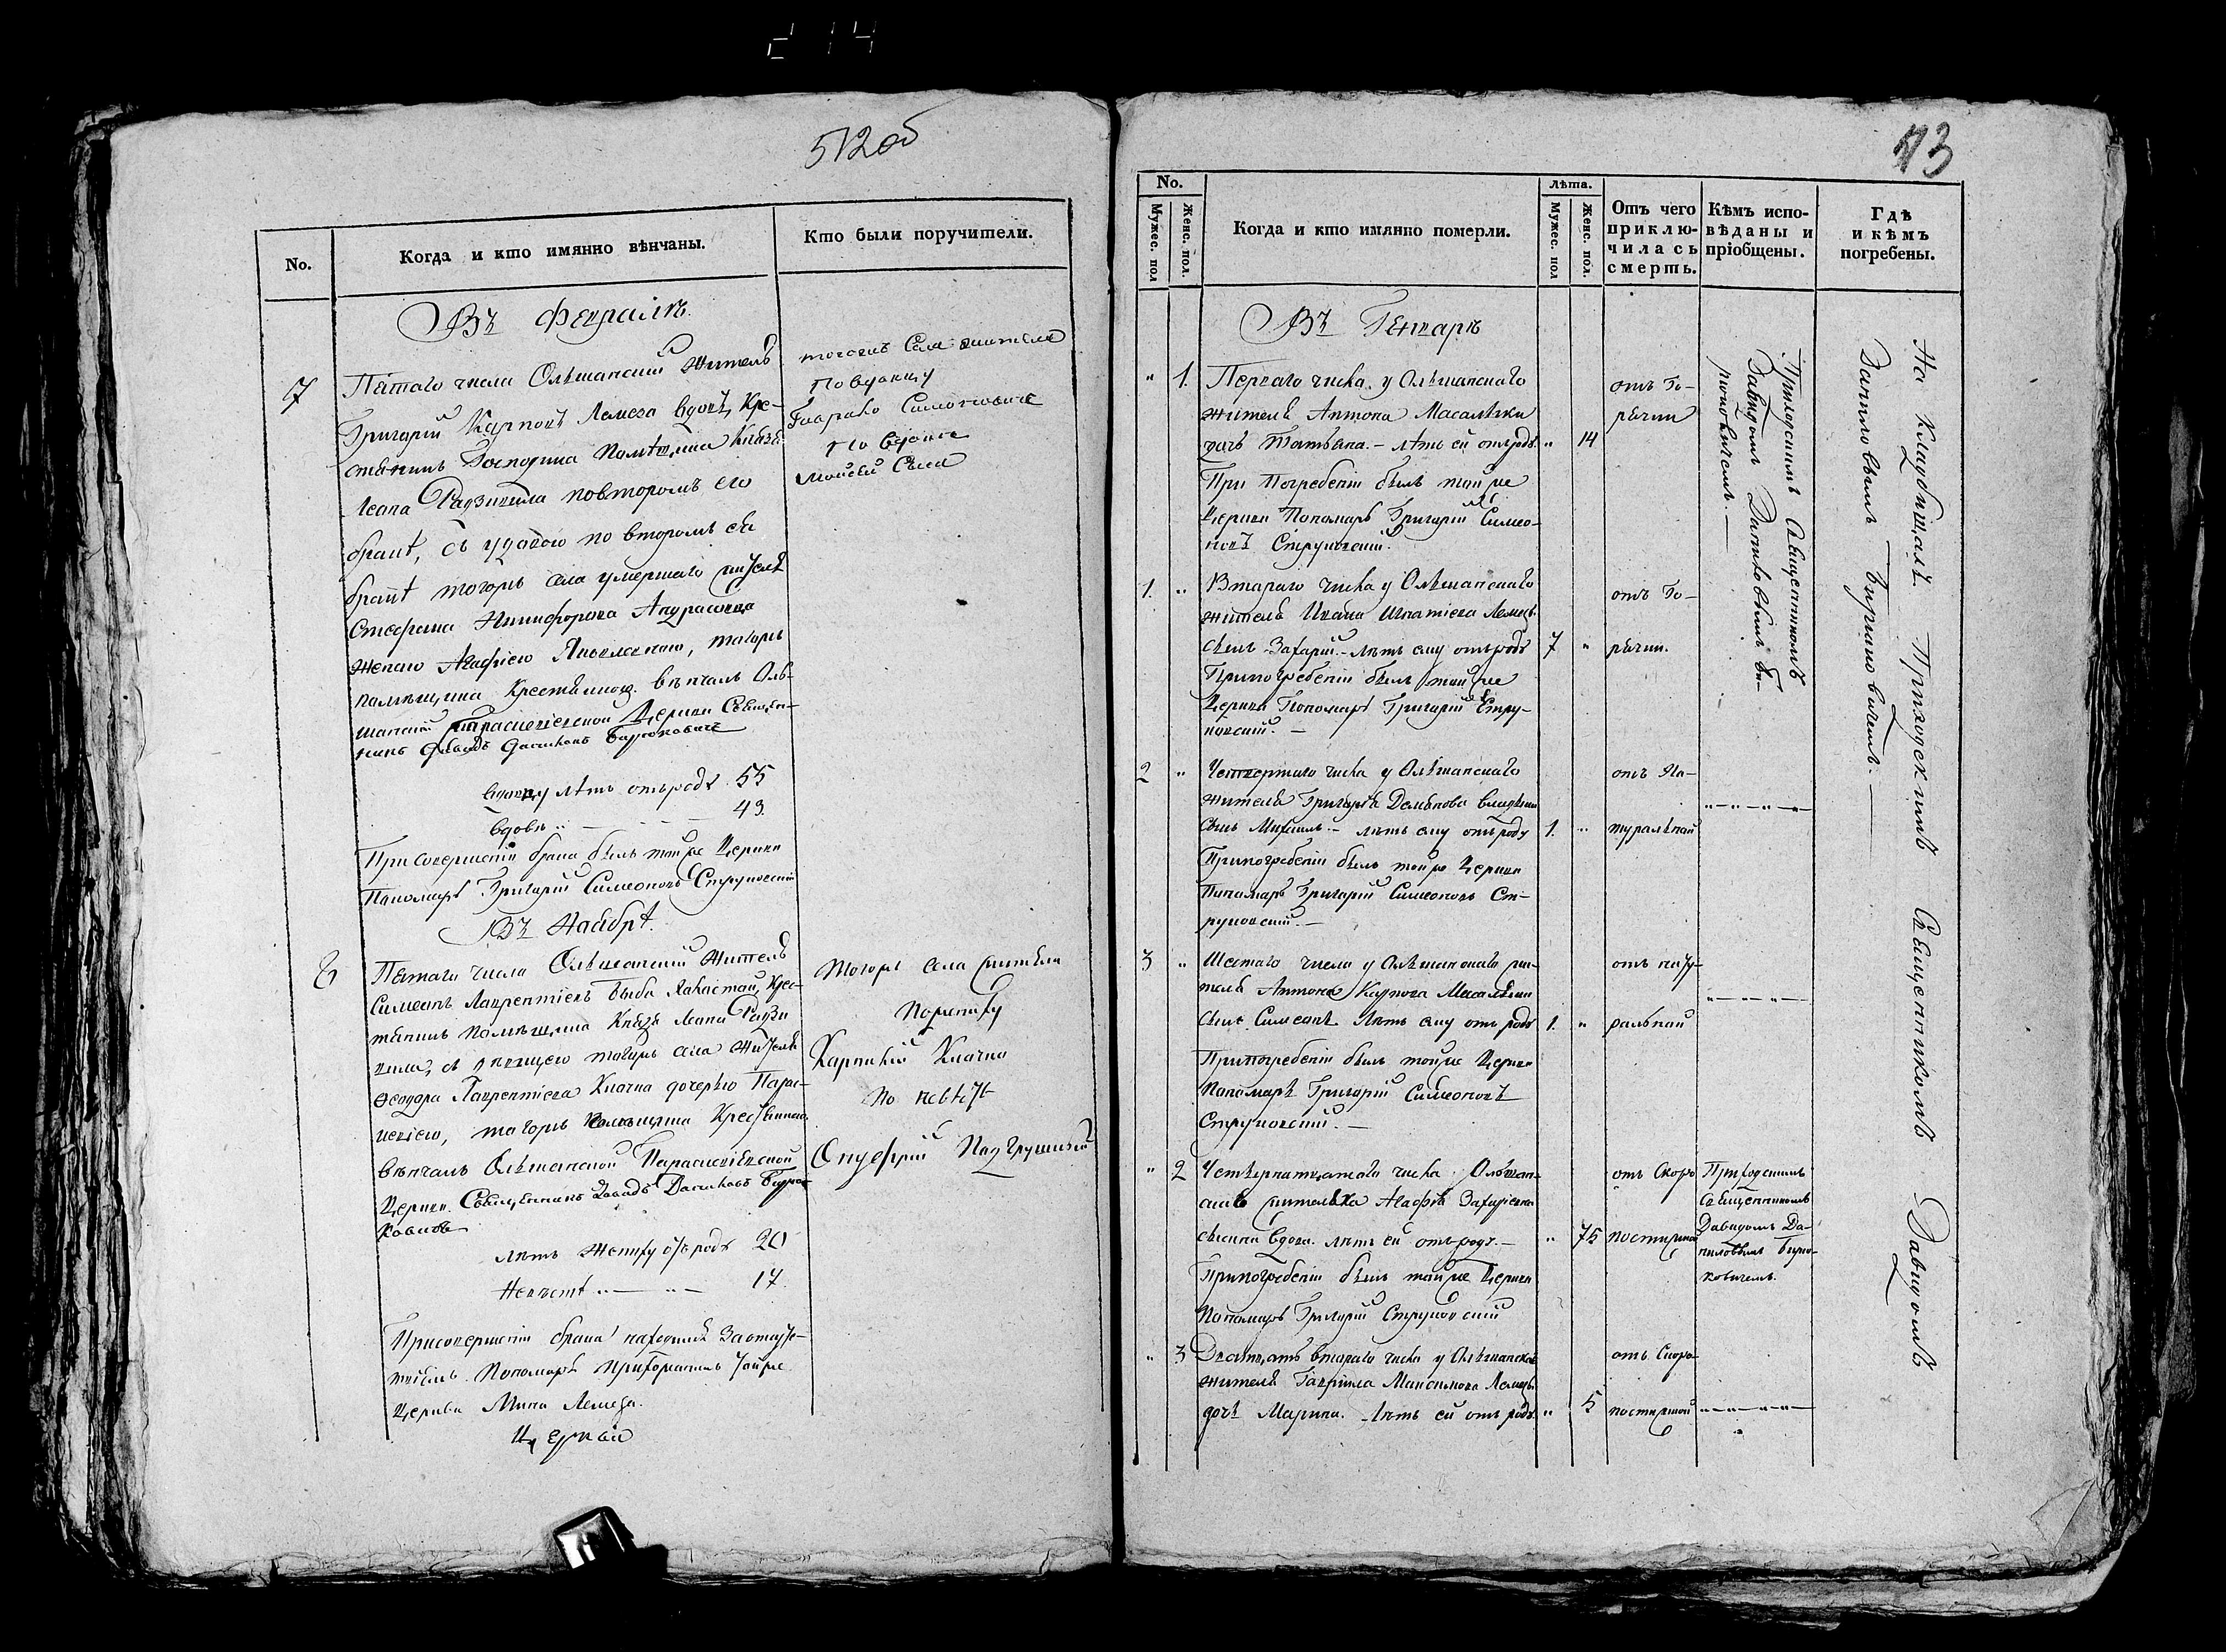 512об
No.
Когда и кто имянно вѣнчаны.
Кто были поручители.
Въ Февралѣ.
7
Пятаго числа Олѣшанскій житель
Григорій Карповъ Лемеза вдовъ, Кре-
стянинъ Господина Помѣщика Князя
Леона Радзивила повторомъ его
бракѣ, съ удовою по второмъ ея
бракѣ тогожъ села умершаго жителя
Стефана Никифорова
женою Агафіею, тогожъ
помѣщика Крестянкою. вѣнчалъ Оль-
шанской Параскевіевской Церкви Священ-
никъ Давидъ Даниловъ Бирюковичъ
вдовцу лѣтъ отъроду 55
вдовѣ „ — „ — 43.
При совершеніи брака былъ тойже Церкви
Пономарь Григорій Симеоновъ Струковскій
тогожъ Села жители
По вдовцу
Гаврило
По вдовѣ
Мойсей
Въ Ноябрѣ.
8
Пятаго числа Олѣшанскій житель
Симеонъ Лаврентіевъ, Крес-
тянинъ помѣщика Князя Леона Радзи
вила, съ дѣвицею тогожъ села жителя
Феодора Лаврентіева Клачка дочерью Парас-
кевіею, тогожъ помѣщика Крестянкою
вѣнчалъ Олѣшанской Параскевіевской
Церкви. Священникъ Давидъ Даниловъ Бирю
ковичъ
лѣтъ жениху отъроду 20
Невѣстѣ „ — „ — 17.
Присовершеніи брака находился
Пономарь тойже
Церкви Мина Лемеза.
Церкви
Тогожъ села жители
Пожениху
Клачка
По невѣстѣ
Онуфрій
73
No.
Мужес. пол
Женс. пол.
Когда и кто имянно померли.
Лѣта.
Мужес. пол
Женс. пол.
Отъ чего приклю-
чилась
смерть.
Кѣмъ испо-
вѣданы и
пріобщены.
Гдѣ
и кѣмъ
погребены.
Въ Генварѣ
„ 1. Перваго числа. у Олѣшанскаго
жителя Антона Масалѣки
дочь Татьяна. — лѣтъ ей отъроду. „ 14
При погребеніи былъ тойже
Церкви Пономарь Григорій Симео-
новъ Струковскій.
отъ го-
рячки
Приходскимъ Священникомъ
Давидомъ Даниловымъ Би-
рюковичемъ. —
На кладбищахъ. Приходскимъ Священникомъ Давидомъ
Даниловымъ Бирюковичемъ. —
1. „ Втораго числа у Олѣшанскаго
жителя Ивана Игнатіева Лемезы
сынъ Захарій. — лѣтъ ему отъроду 7 „
Припогребеніи былъ тойже
Церкви Пономарь Григорій Стру-
ковскій. —
отъ Го-
рячки.
2 „ Четвертаго числа у Олѣшанскаго
жителя Григорія Демянова
сынъ Михаилъ — лѣтъ ему отъроду 1. „
Припогребеніи былъ тойже Церкви
Пономарь Григорій Симеоновъ Ст-
руковскій. —
отъ На-
туральной
„—„—„—„—
3 „ Шестаго числа у Олѣшанскаго жи-
теля Антона Карпова Масалѣки
сынъ Симеонъ лѣтъ ему отъ роду 1. „
Припогребеніи былъ тойже Церкви
Пономарь Григорій Симеоновъ
Струковскій. —
отъ нату-
ральной
„—„—„—„—
„ 2 Четырнатцатаго числа Олѣшан-
ская жителька Агафія Захаріева
вдова. лѣтъ ей отъроду. — „ 75
Припогребеніи былъ тойже Церкви
Пономарь Григорій Струковскій
отъ Скоро
постижной
Приходскимъ
Священникомъ
Давидомъ Да-
ниловымъ Бирю-
ковичемъ.
„ 3 Дватцать втораго числа у Олѣшанскаго
жителя Гавріила Максимова Лемезы
дочь Марина. Лѣтъ ей отъ роду. „ 5
отъ Скоро-
постижной
„—„—„—„—